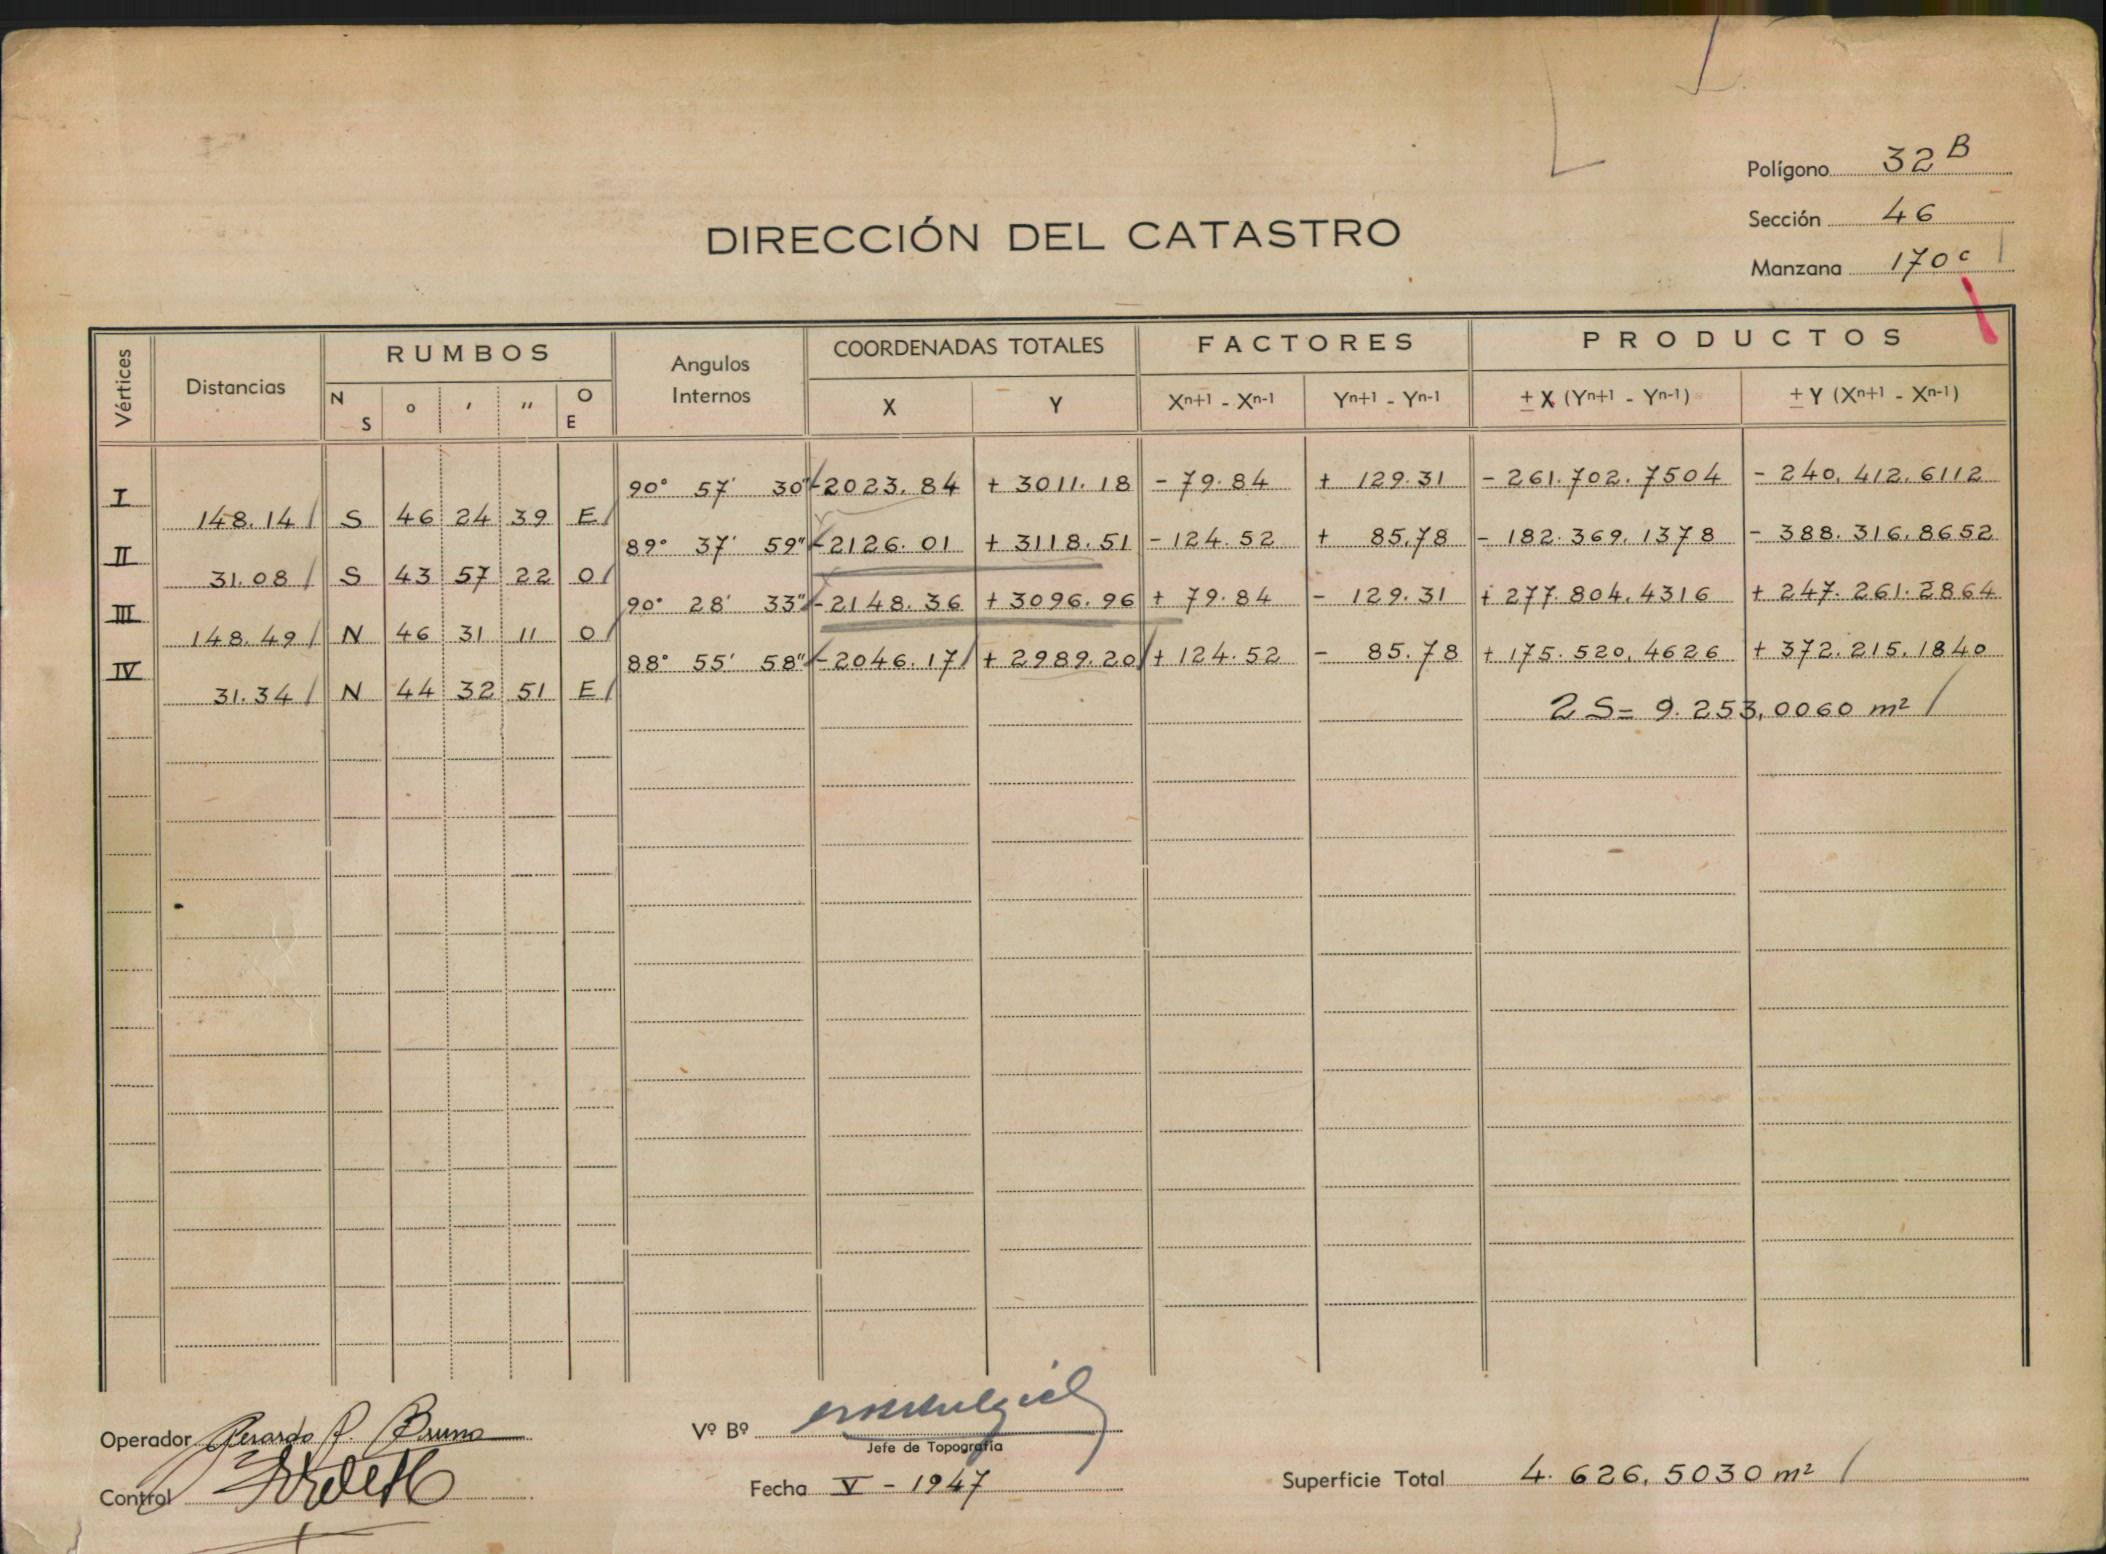 Polígono 32 B
Sección 46
Manzana 170 c
DIRECCIÓN DEL CATASTRO
Vértices Distancias RUMBOS Angulos Internos COORDENADAS TOTALES FACTORES PRODUCTOS
N S o ' '' O E X Y Xn+1 - Xn-1 Yn+1 - Yn-1 ± X (Yn+1 - Yn-1) ± Y (Xn+1 - Xn-1)
I 90° 57' 30" -2023.84 + 3011.18 - 79.84 + 129.31 - 261.702.7504 - 240.412.6112
148.14 S 46 24 39 E
II 89° 37' 59" -2126.01 + 3118.51 - 124.52 + 85.78 - 182.369.1378 - 388.316.8652
31.08 S 43 57 22 O
III 90° 28' 33" -2148.36 + 3096.96 + 79.84 - 129.31 + 277.804.4316 + 247.261.2864
148.49 N 46 31 11 O
IV 88° 55' 58" -2046.17 + 2989.20 + 124.52 - 85.78 + 175.520,4626 + 372.215.1840
31.34 N 44 32 51 E
2 S = 9.253,0060 m²
Operador Gerardo P. Bruno
Control
Vº Bº
Jefe de Topografía
Fecha V - 1947
Superficie Total 4.626,5030 m²